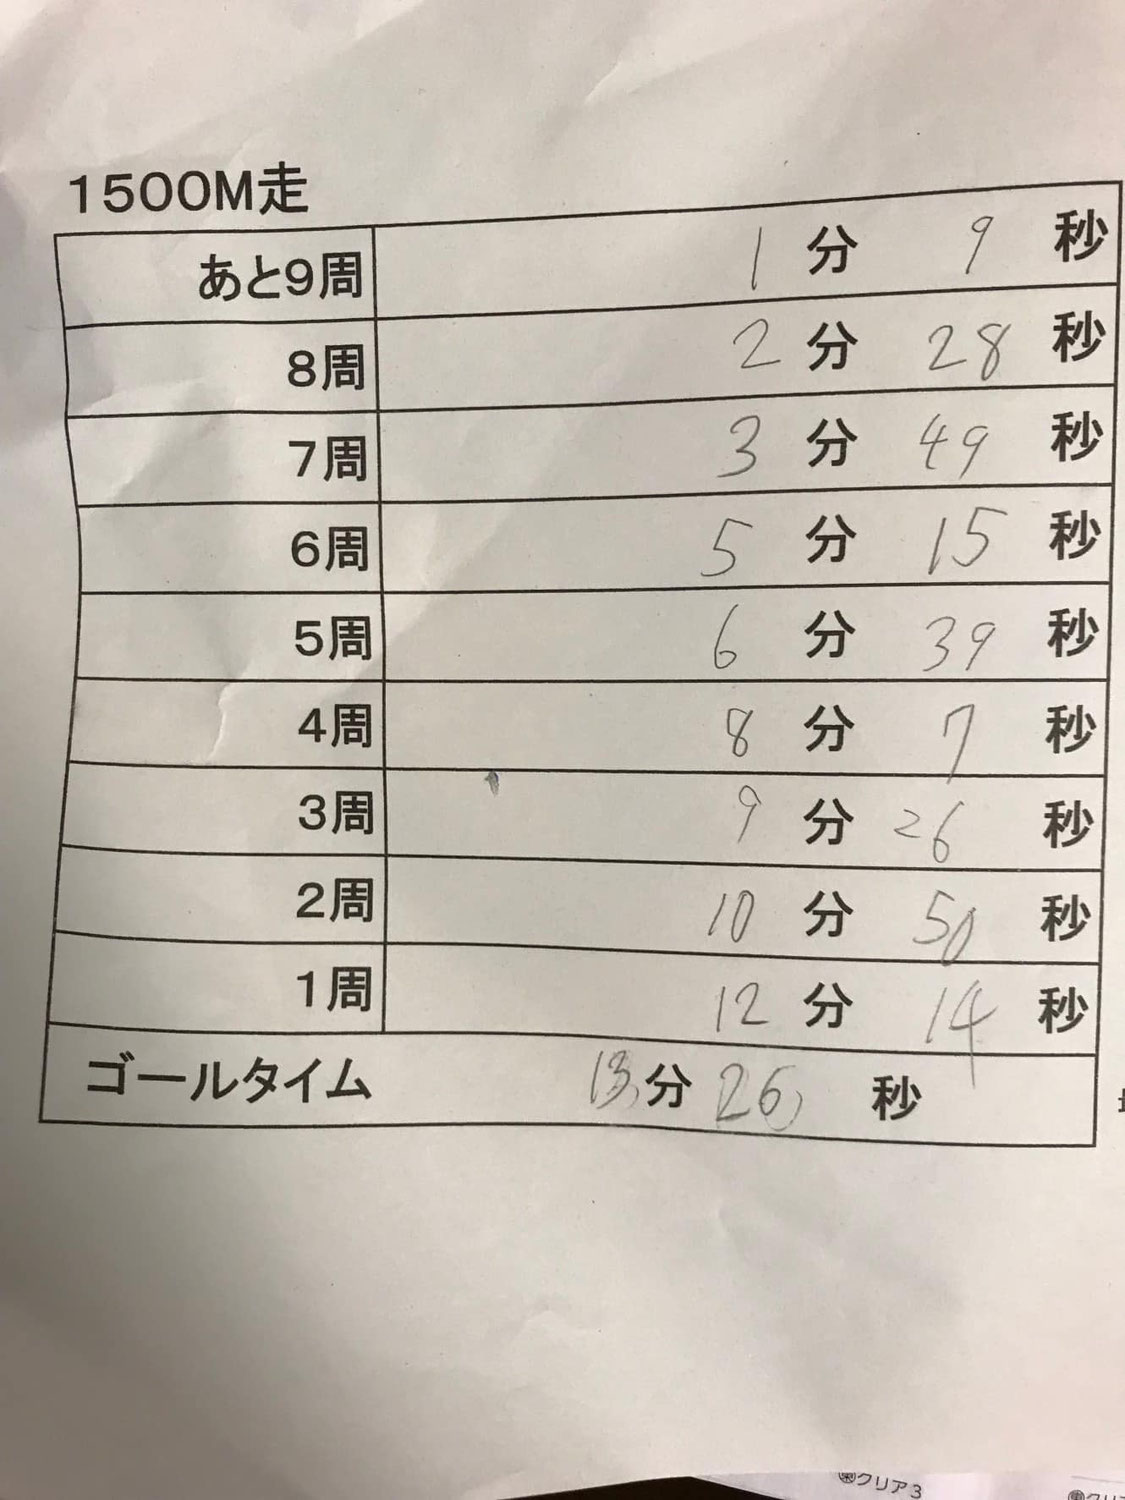 1500M走
あと9周 1分 9秒
8周 2分 28秒
7周 3分 49秒
6周 5分 15秒
5周 6分 39秒
4周 8分 7秒
3周 9分 26秒
2周 10分 50秒
1周 12分 14秒
ゴールタイム 13分 26秒
クリア3